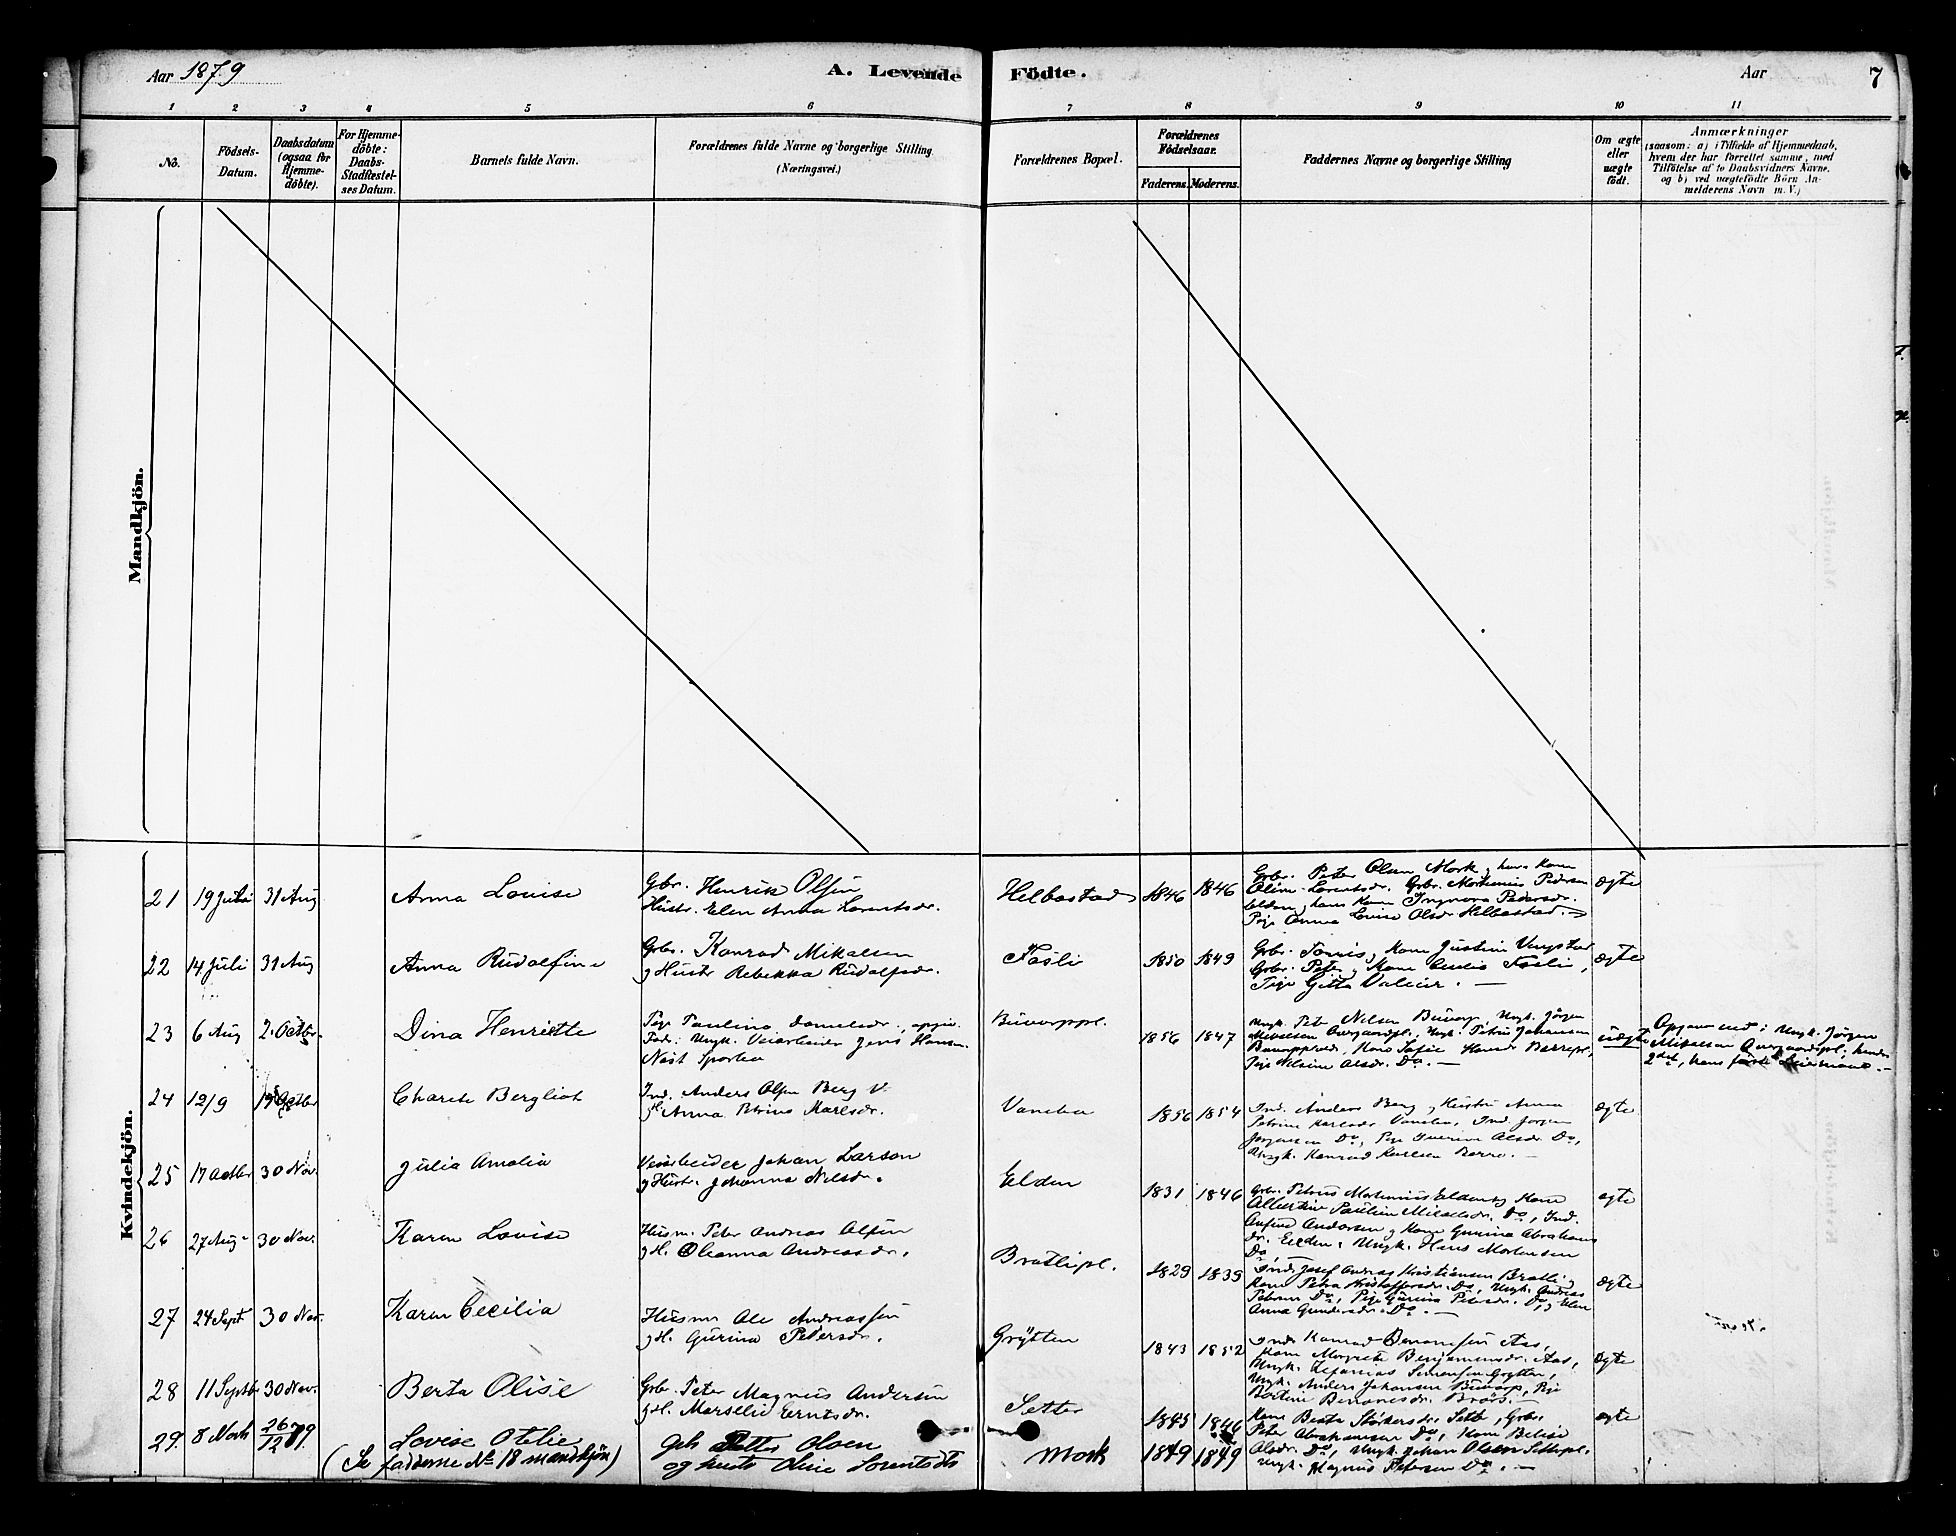 Aar 1879
A. Levende Födte.
Aar
7
1 2 3 4 5 6 7 8 9 10 11
No.
Födsels-Datum.
Daabsdatum (ogsaa for Hjemme-döbte).
For Hjemme-döbte: Daabs-Stadfæstel-ses Datum.
Barnets fulde Navn.
Forældrenes fulde Navne og borgerlige Stilling (Næringsvei.)
Forældrenes Bopæl.
Forældrenes Födselsaar.
Faderens. Moderens.
Faddernes Navne og borgerlige Stilling
Om ægte eller uægte födt.
Anmærkninger
(saasom: a) i Tilfælde af Hjemmedaab,
hvem der har forrettet samme, med
Tilföielse af to Daabsvidners Navne.
og b) ved uægtefödte Börn An-
melderens Navn m. V.)
Mandkjön.
Kvindekjön.
21 19 Juli 31 Aug Anna Louise
Gbr. Henrik Olsen
Hustr. Elen Anna Lorentsdr.
Helbostad 1846 1846
Gbr. Peter Olsen Mork, hans Kone
Oline Lorentsdr. Gbr. Mortinius Pedersen
Elden, hans Kone Ingvora Pedersdr.
Pige Anna Lovise Olsdr Helbostad.
ægte
22 14 Juli 31 Aug Anna Rudolfine
Gbr. Konrad Mikalsen
og Hustr Rebekka Rudolfsdr.
Fosli 1850 1849
Gbr. Tomis, Kone Justine
Gbr. Peter, Kone Foslie,
Pige Gitta
ægte
23 6 Aug 2. Octbr. Dina Henriette
Pige Paulina Danielsdr., opgiv.
Fad: Ungk. Veiarbeider Jens Hansen
Buvarppl. 1856 1847
Ungk. Peter Nilsen Buvarp, Ungk. Jörgen
Mikalsen Overgaardpl., Ungk. Petrus Johansen
Pige Nilsine Olsdr. Do.
uægte
Opgivet ved: Ungk. Jörgen
Mikalsen Overgaardspl; hendes
2det, hans förste Leiermaal.
24 12/9 Octbr Charlt Bergliot
Ind. Anders Olsen Berg
gH Anna Petrine Karlsdr.
1856 1854
Ind. Anders Berg, Hustru Anna
Petrine Karlsdr Ind. Jorgen
Jorgensen Do, Pige Olsdr. Do,
Ungk. Konrad Karlsen
ægte
25 17 Octbr 30 Nov. Julia Amalia
Veiarbeider Johan Larson
gHust. Johanna Nilsdr.
Elden 1831 1846
Gbr. Petrus Mortinius Elden, Kone
Albertine Pauline Mikalsdr. Do, Ind.
Andersen g Kone Gurina Abrahams
dr. Elden, Ungk. Hans Mortensen
Do
ægte
26 27 Aug 30 Nov. Karen Lovise
Husm. Peter Andreas Olsen
gH. Oleanna Andreasdr.
Bratlipl. 1829 1839
Ind. Josef Andreas Kristiansen Bratli,
Kone Petra Kristoffersdr. Do, Ungk. Andreas
Petersen Do, Pige Gurine Petersdr. Do, Elen
Anna Gundersdr. Do.
ægte
27 24 Sept 30 Nov. Karen Cecilia
Husm Ole Andreassen
gH. Gurina Pedersdr.
Grytten 1843 1852
Ind. Konrad Benonisen Aas,
Kone Margrete Benjaminsdr. Aas,
Ungk. Zefanias Simonsen Grytten,
Ungk. Anders Johansen Buvarp, Pige
Benonisdr.
ægte
28 11 Septbr 30 Nov. Berta Olise
Gbr. Peter Magnus Andersen
gH. Marselie Berntsdr.
Setter 1845 1846
Kone Berta Setter, Gbr.
Peter Abrahamsen Do, Kone
Olsdr. Do, Ungk. Johan Olsen Setterpl.
Ungk. Magnus Petersen Do.
ægte
29. 8 Novb 26/12 79. Lovise Otelie
(Se fadderne No 18 mandkjön)
Gbr Petter Olsen
og hustr Oline Lorentsdtr
Mork 1849 1849